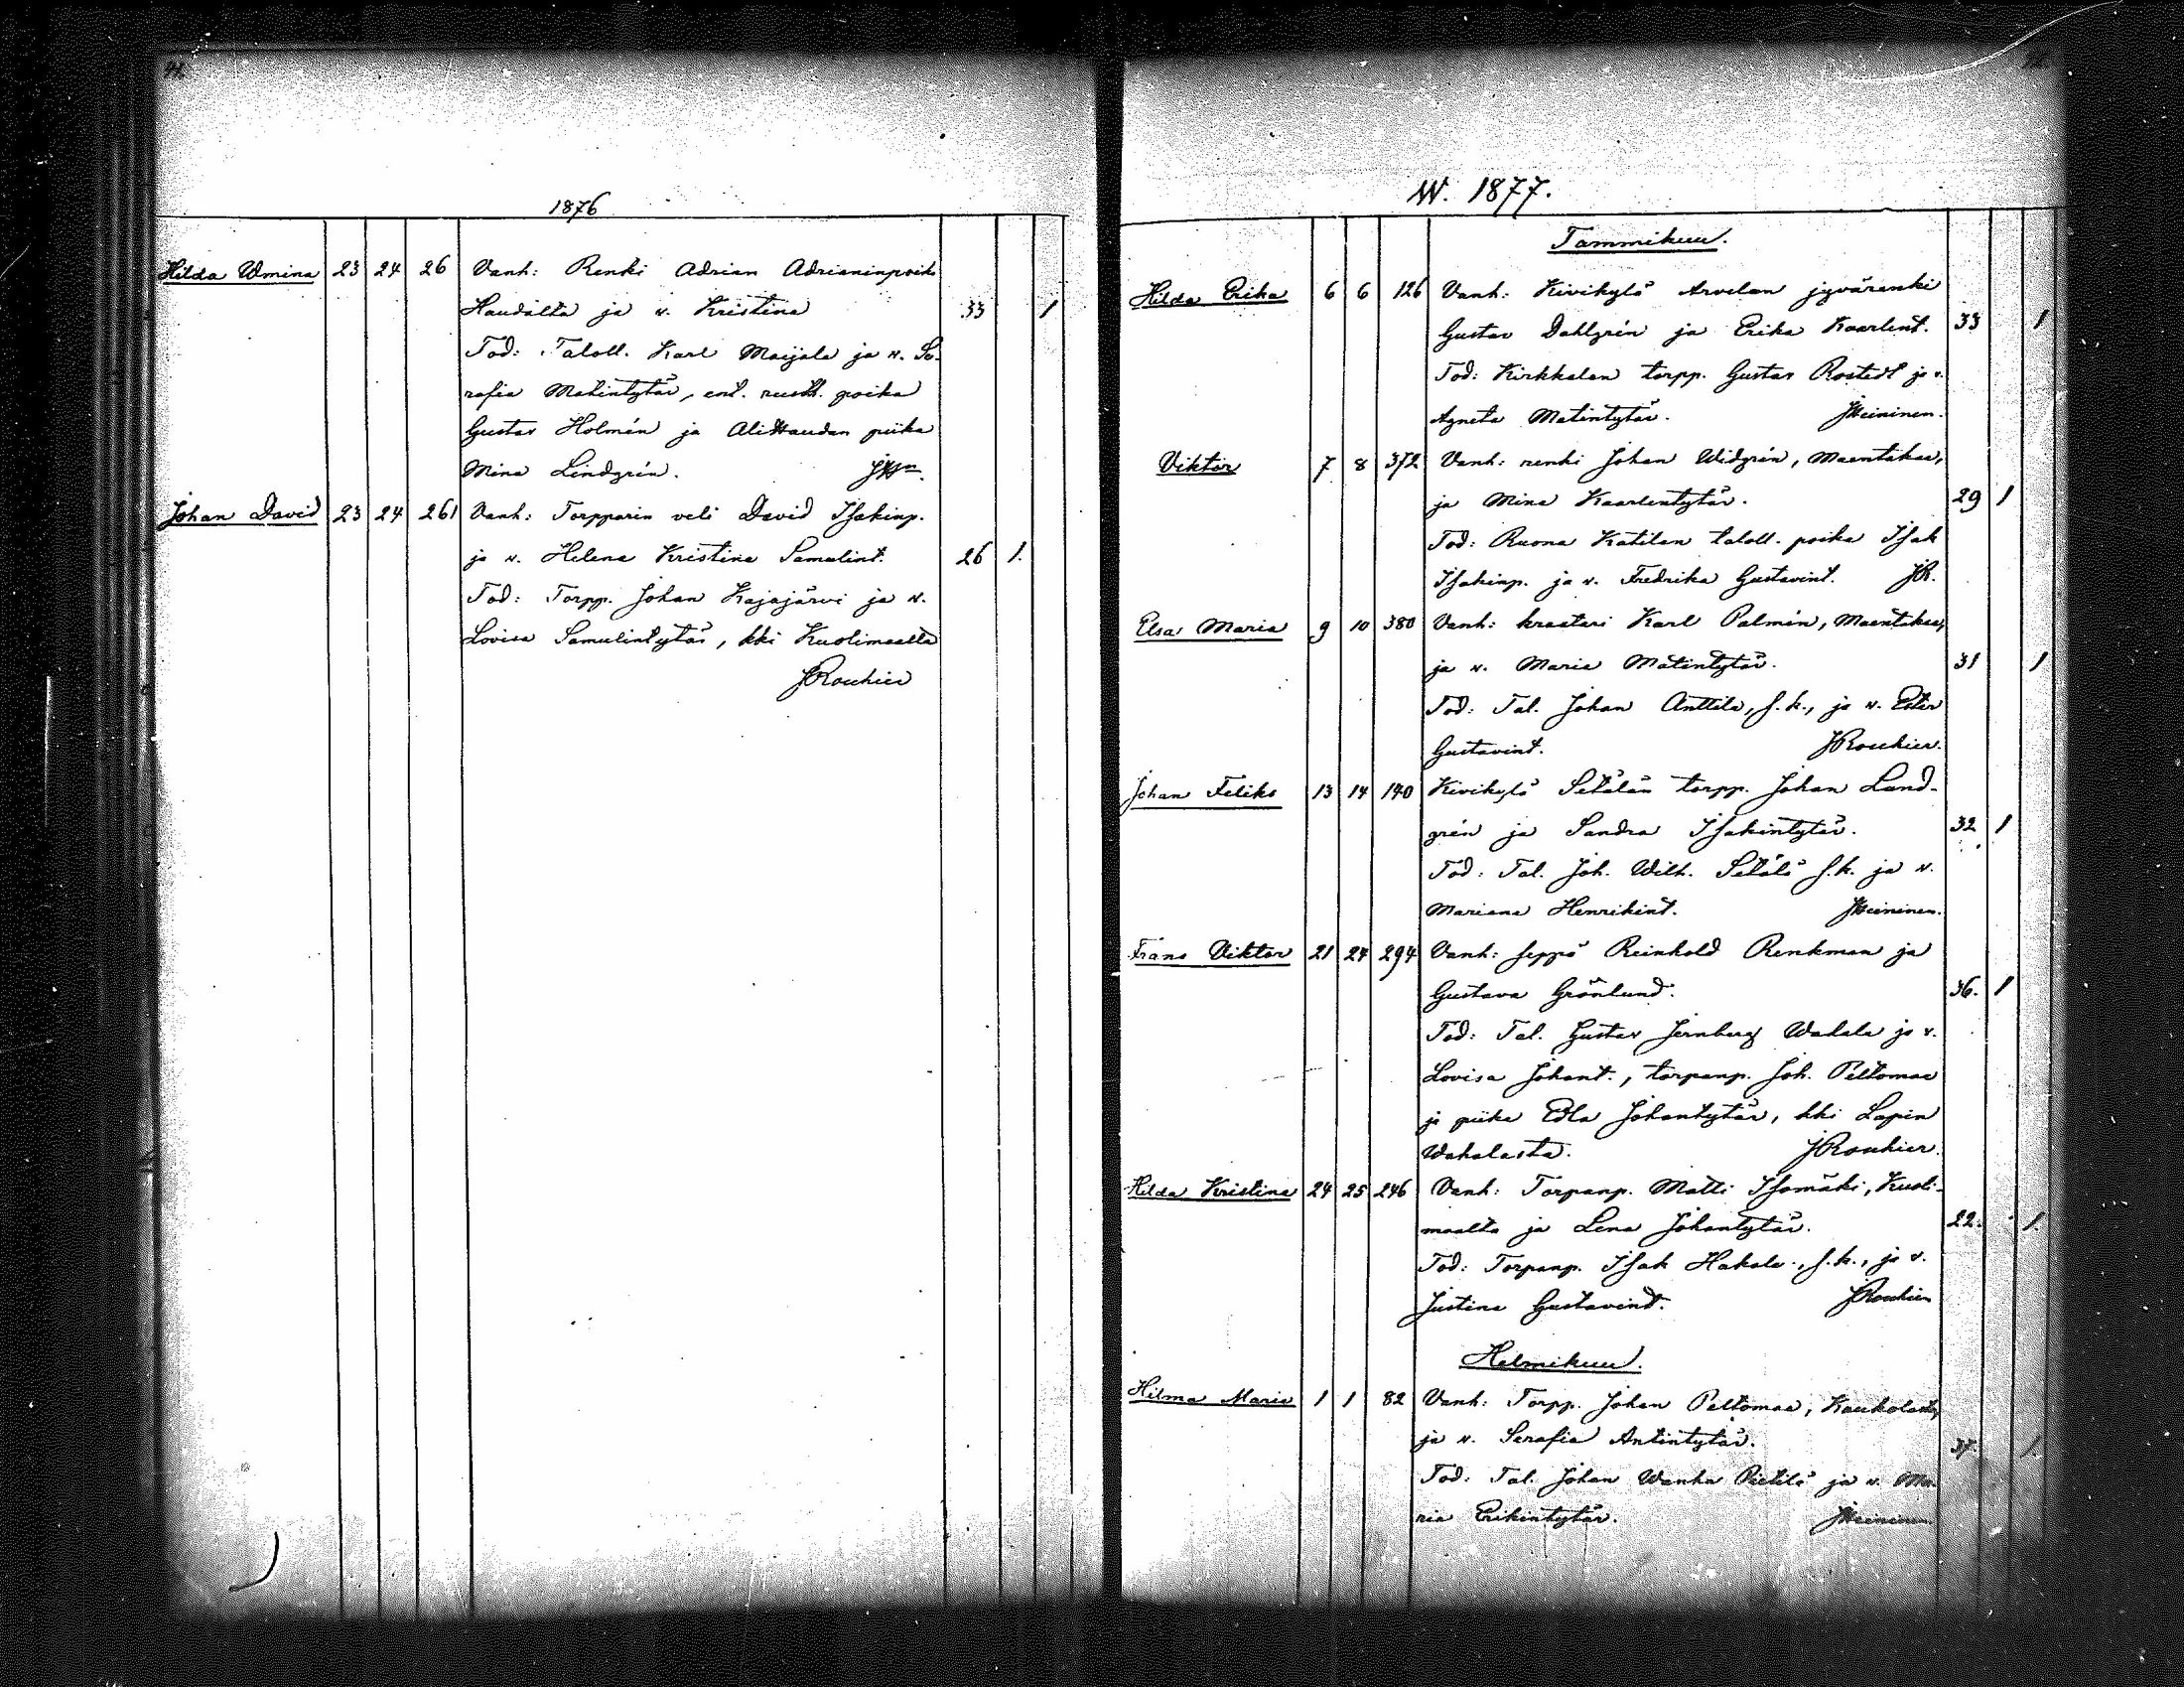 1876
Hilda Wmina 23 24 26 Vanh: Renki Adrian Adrianinpoika
Haudalta ja v. Kristina 33 1
Tod: Taloll. Karl Maijala ja v. Se-
rafia Matintytär, ent. rustt. poika
Gustav Holmén ja AliHaudan piika
Mina Lindgrén.
Johan David 23 24 261 Vanh: Torpparin veli David Isakinp.
ja v. Helena Kristina Samulint. 26 1.
Tod: Torpp. Johan Kajajärvi ja v.
Lovisa Samulintytär, kki Kuolimaalta
JRouhier
W. 1877.
Tammikuu.
Hilda Erika 6 6 126 Vanh: Kivikylä Arvelan jyvärenki
Gustav Dahlgrén ja Erika Kaarlent. 33 1
Tod: Kirkkalan torpp. Gustav Rostedt ja v.
Agneta Matintytär. JHeininen.
Viktor 7 8 372 Vanh: renki Johan Widgrén, Maentakaa,
ja Mina Kaarlentytär. 29 1
Tod: Ruona Katilan taloll. poika Isak
Isakinp. ja v. Fredrika Gustavint. JR.
Elsa Maria 9 10 380 Vanh: kraatari Karl Palmén, Maentakaa,
ja v. Maria Matintytär. 31 1
Tod: Tal. Johan Anttila, s.k., ja v. Ester
Gustavint. JRouhier.
Johan Feliks 13 14 140 Kivikylä Setälän torpp. Johan Land-
grén ja Sandra Isakintytär. 32 1
Tod: Tal. Joh. Wilh. Setälä s.k. ja v.
Mariana Henrikint. JHeininen.
Frans Viktor 21 24 294 Vanh: seppä Reinhold Renkman ja
Gustava Grönlund. 36. 1
Tod: Tal. Gustav Jernberg Wahala ja v.
Lovisa Johant., torpanp. Joh. Peltomaa
ja piika Edla Johantytär, kki Lapin
Wahalasta. JRouhier.
Hilda Kristina 24 25 246 Vanh: Torpanp. Matti Isomäki, Kuoli-
maalta ja Lena Johantytär. 22. 1.
Tod: Torpanp. Isak Hakala, s.k., ja v.
Justina Gustavint. JRouhier
Helmikuu.
Hilma Maria 1 1 82 Vanh: Torpp. Johan Peltomaa, Kaukolasta,
ja v. Serafia Antintytär. 37. 1.
Tod: Tal. Johan Wanha Pietilä ja v. Ma-
ria Erikintytär. JHeininen.